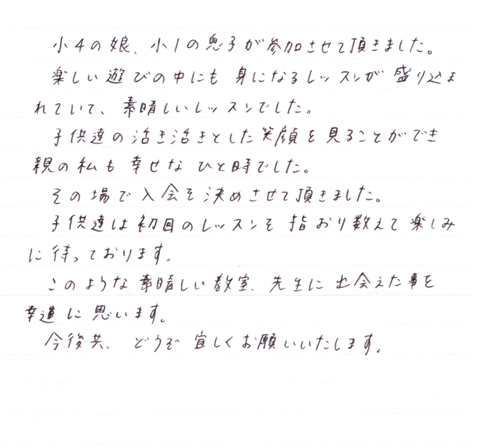 小4の娘、小1の息子が参加させて頂きました。
楽しい遊びの中にも身になるレッスンが盛り込ま
れていて、素晴しいレッスンでした。
子供達の活き活きとした笑顔を見ることができ
親の私も幸せなひと時でした。
その場で入会を決めさせて頂きました。
子供達は初回のレッスンを指おり数えて楽しみ
に待っております。
このような素晴しい教室、先生に出会えた事を
幸運に思います。
今後共、どうぞ宜しくお願いいたします。